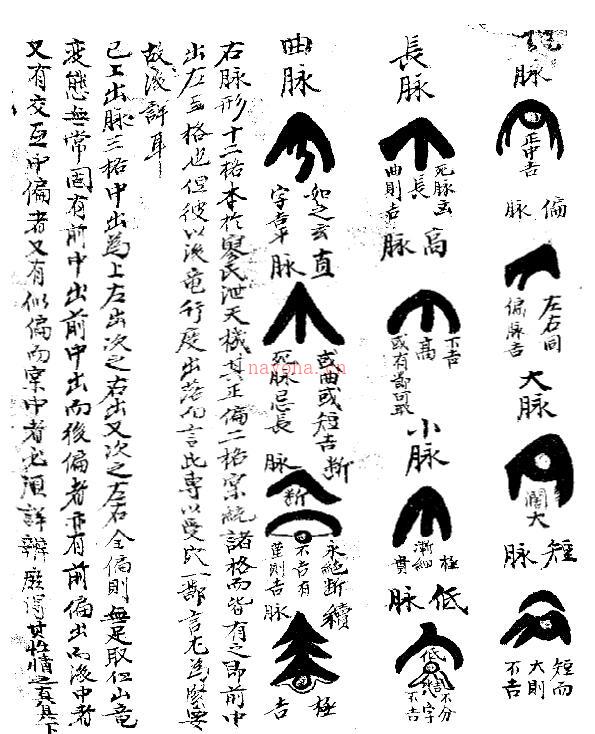 脉
正中吉
偏脉
左右同
偏脉吉
大脉
濶大
短脉
短而
大則
不吉
長脉
死脉玄
長
曲則吉
高脉
不吉
高
小脉
極
漸細
貴
低脉
低
不分
字
不吉
曲脉
如之玄
字吉
直脉
或曲或短吉
死脉忌長
断脉
断
永絶断
不吉有
則吉
續脉
極
吉
右脉形十二格本於寥氏泄天機其正偏二格寔統諸格而皆有之即前中
出左右格也但彼以後竜行度出落而言此專以受穴一節言尤為緊要
故湥詳耳
已上出脉三格中出為上左出次之右出又次之左右全偏則無足取但山竜
变態無常固有前中出前中出而後偏者亦有前偏出而後中者
又有交互中偏者又有似偏而寔中者必須詳辨庶得其性情之真具下
nayona.cn